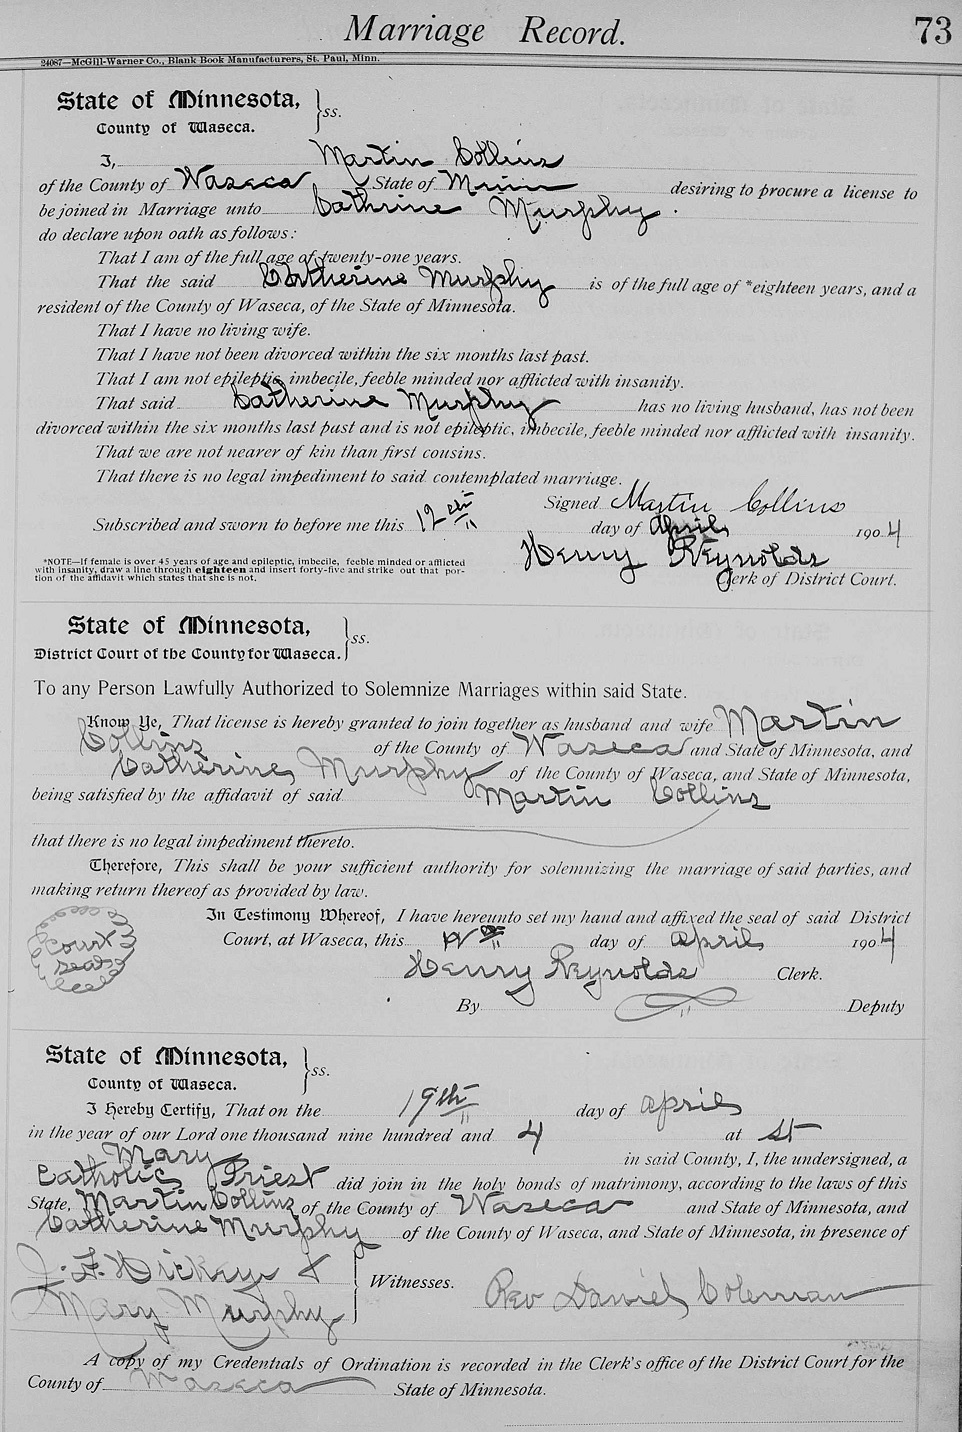 Marriage Record. 73
24087—McGill-Warner Co., Blank Book Manufacturers, St. Paul, Minn.
State of Minnesota, } ss.
County of Waseca.
I, Martin Collins
of the County of Waseca State of Minn desiring to procure a license to
be joined in Marriage unto Cathrine Murphy.
do declare upon oath as follows:
That I am of the full age of twenty-one years.
That the said Catherine Murphy is of the full age of *eighteen years, and a
resident of the County of Waseca, of the State of Minnesota.
That I have no living wife.
That I have not been divorced within the six months last past.
That I am not epileptic, imbecile, feeble minded nor afflicted with insanity.
That said Catherine Murphy has no living husband, has not been
divorced within the six months last past and is not epileptic, imbecile, feeble minded nor afflicted with insanity.
That we are not nearer of kin than first cousins.
That there is no legal impediment to said contemplated marriage.
Signed Martin Collins
Subscribed and sworn to before me this 12th day of April 1904
Henry Reynolds
Clerk of District Court.
*NOTE—If female is over 45 years of age and epileptic, imbecile, feeble minded or afflicted
with insanity, draw a line through eighteen and insert forty-five and strike out that por-
tion of the affidavit which states that she is not.
State of Minnesota, } ss.
District Court of the County for Waseca.
To any Person Lawfully Authorized to Solemnize Marriages within said State.
Know Ye, That license is hereby granted to join together as husband and wife Martin
Collins of the County of Waseca and State of Minnesota, and
Catherine Murphy of the County of Waseca, and State of Minnesota,
being satisfied by the affidavit of said Martin Collins
that there is no legal impediment thereto.
Therefore, This shall be your sufficient authority for solemnizing the marriage of said parties, and
making return thereof as provided by law.
In Testimony Whereof, I have hereunto set my hand and affixed the seal of said District
Court, at Waseca, this day of April 1904
Court
Seal
Henry Reynolds Clerk.
By Deputy
State of Minnesota, } ss.
County of Waseca.
I Hereby Certify, That on the 19th day of April
in the year of our Lord one thousand nine hundred and 4 at St
Mary in said County, I, the undersigned, a
Catholic Priest did join in the holy bonds of matrimony, according to the laws of this
State, Martin Collins of the County of Waseca and State of Minnesota, and
Catherine Murphy of the County of Waseca, and State of Minnesota, in presence of
J. F. Dickey &
Mary Murphy } Witnesses. Rev Daniel Coleman
A copy of my Credentials of Ordination is recorded in the Clerk's office of the District Court for the
County of Waseca State of Minnesota.